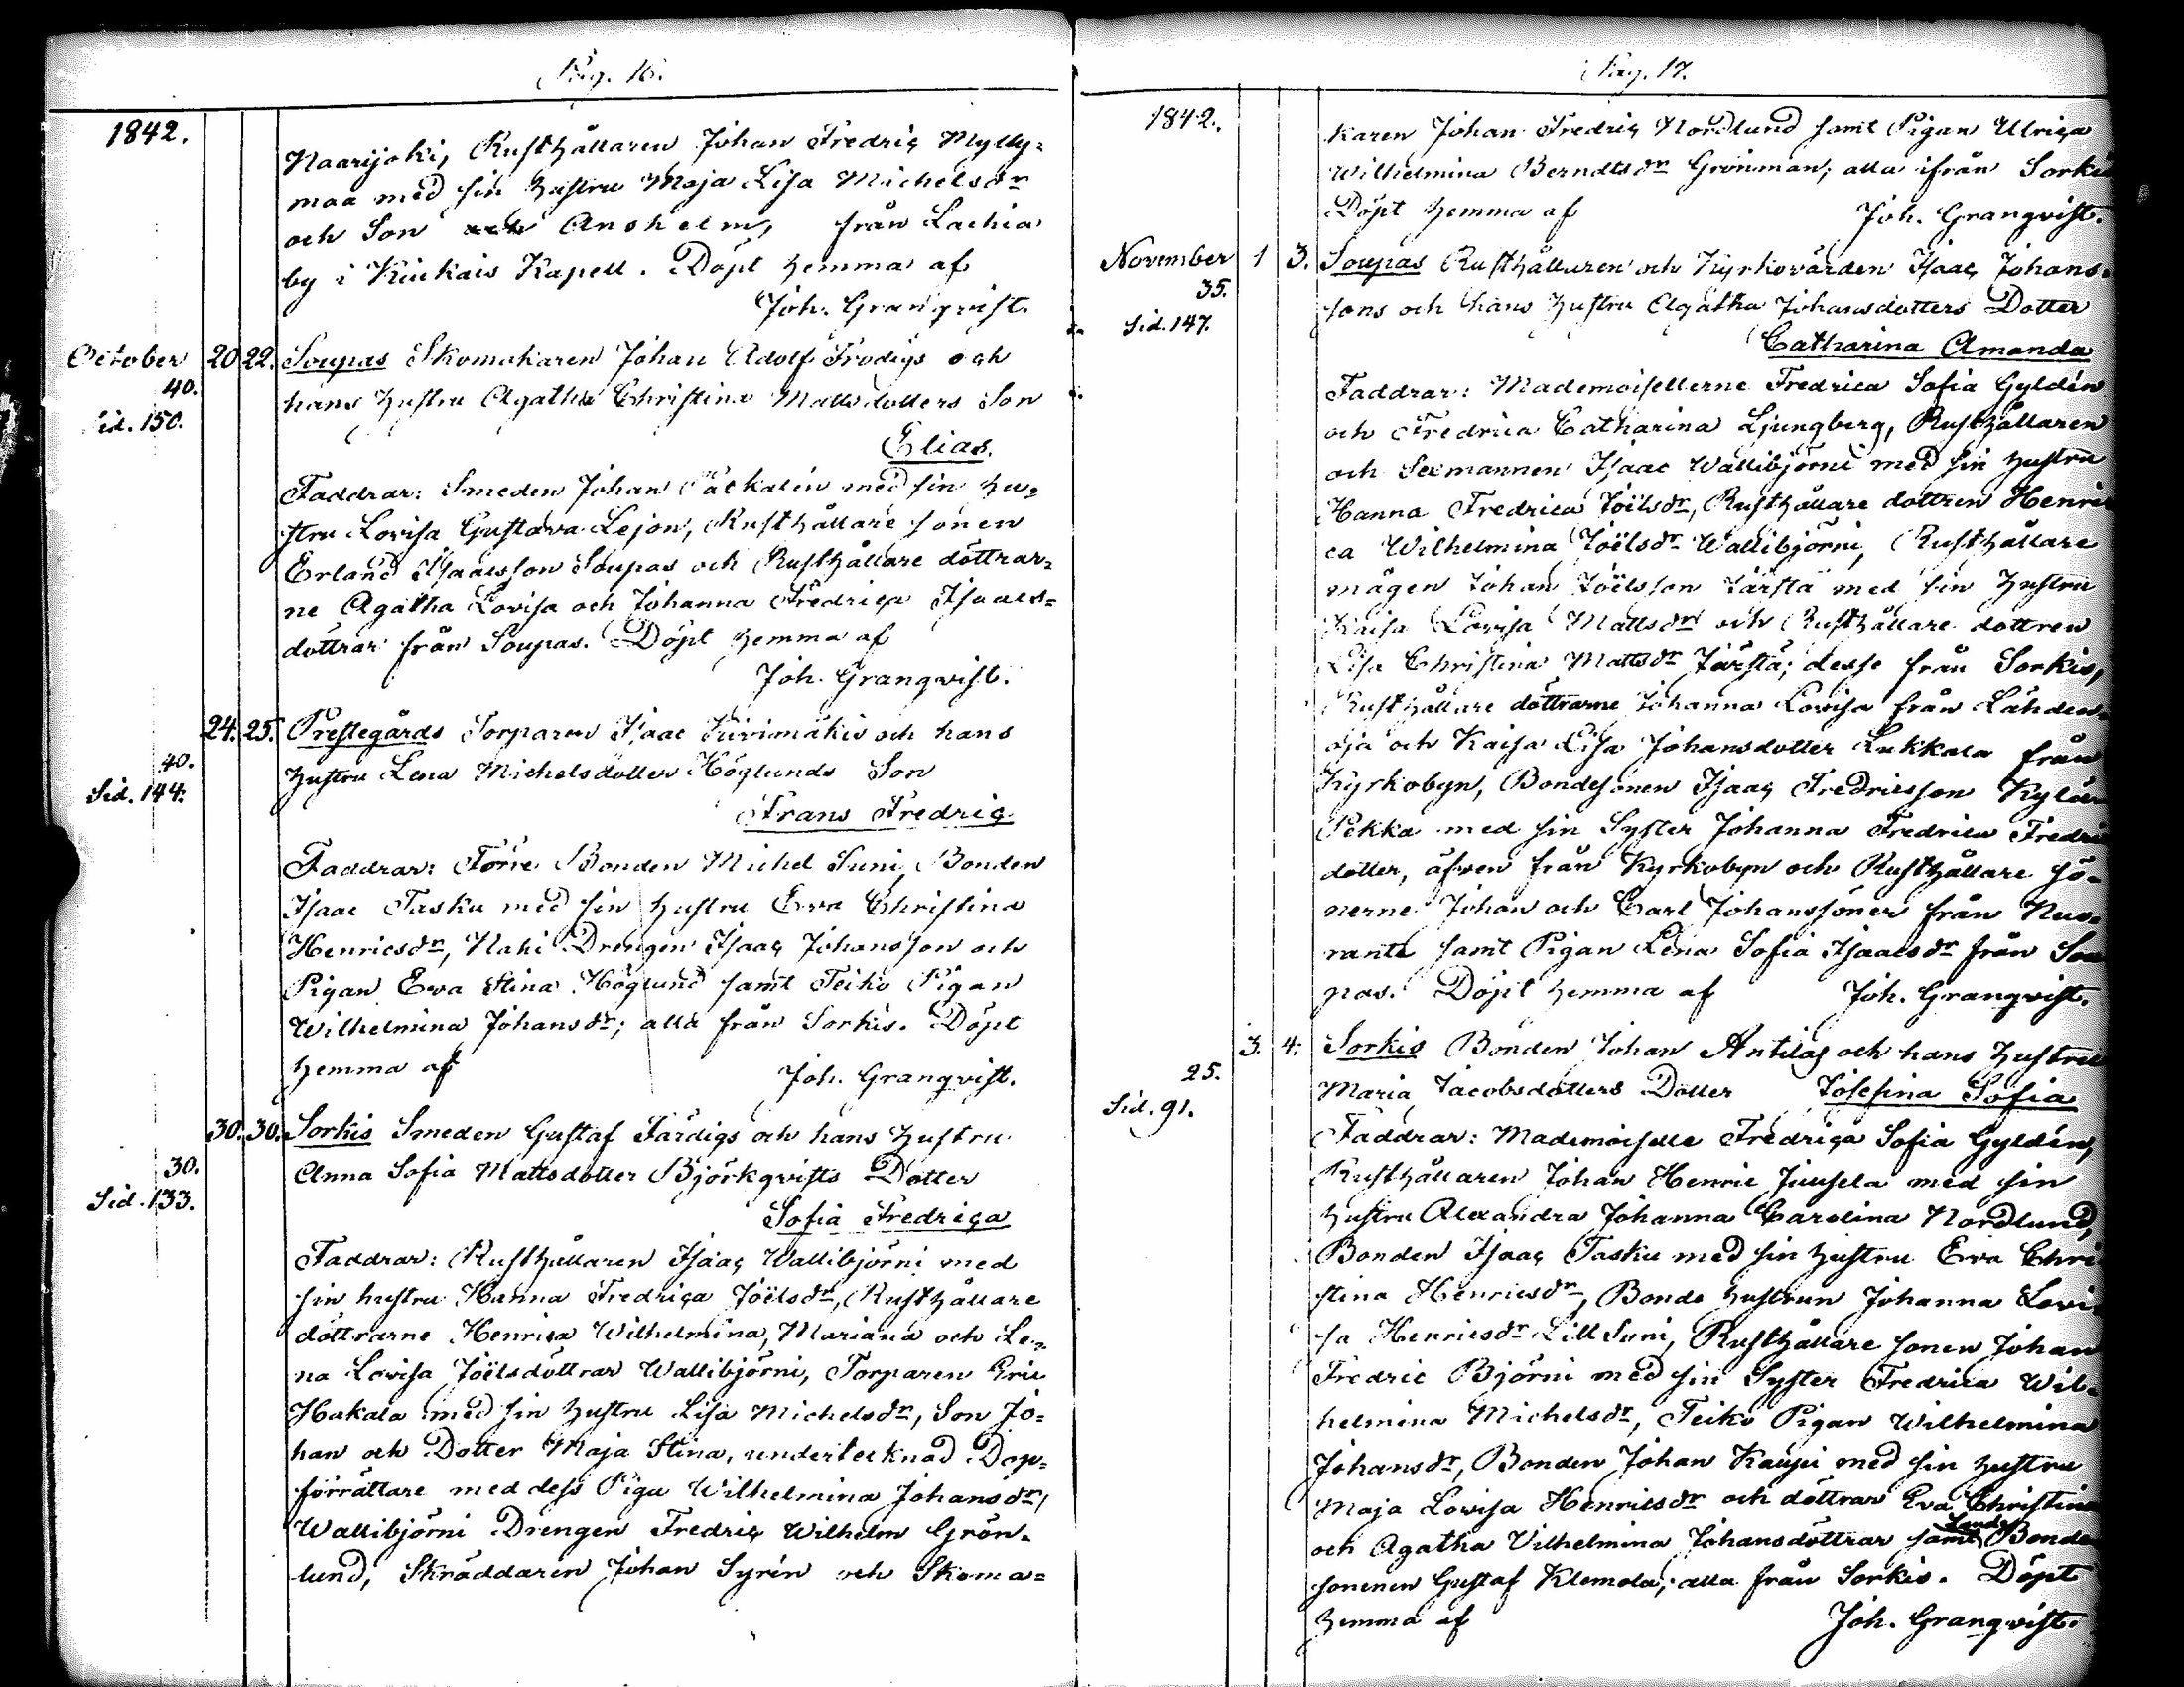 Pag. 16.
1842.
Naarijoki, Rusthållaren Johan Fredric Mylly=
maa med sin hustru Maja Lisa Michelsdr
och Son Anshelm, från Lachia
by i Kiukais Kapell. Döpt hemma af
Joh. Granqvist.
October 20 22. Soupas Skomakaren Johan Adolf Frodigs och
40.
hans hustru Agatha Christina Mattsdotters Son
Sid. 150.
Elias.
Faddrar: Smeden Johan Päckalin med sin hu=
stru Lovisa Gustava Lejon, Rusthållare sonen
Erland Isaacsson Soupas och Rusthållare döttrar=
ne Agatha Lovisa och Johanna Fredrica Isaacs=
döttrar från Soupas. Döpt hemma af
Joh. Granqvist.
24. 25. Prestegårds Torparen Isaac Kivimäkis och hans
40.
hustru Lena Michelsdotter Höglunds Son
Sid. 144.
Frans Fredric
Faddrar: Förre Bonden Michel Suni, Bonden
Isaac Tasku med sin hustru Eva Christina
Henricsdr, Nahi Drengen Isaac Johansson och
Pigan Eva Stina Höglund samt Teiko Pigan
Wilhelmina Johansdr; alla från Sorkis. Döpt
hemma af Joh. Granqvist.
30. 30. Sorkis Smeden Gustaf Färdigs och hans hustru
30.
Anna Sofia Mattsdotter Björkqvists Dotter
Sid. 133.
Sofia Fredrica
Faddrar: Rusthållaren Isaac Wallibjörni med
sin hustru Hanna Fredrica Joëlsdr, Rusthållare
döttrarne Henrica Wilhelmina, Mariana och Le=
na Lovisa Joëlsdöttrar Wallibjörni, Torparen Eric
Hakala med sin hustru Lisa Michelsdr, Son Jo=
han och Dotter Maja Stina, undertecknad Dop=
förrättare med dess Piga Wilhelmina Johansdr,
Wallibjörni Drengen Fredric Wilhelm Grön=
lund, Skräddaren Johan Syrén och Skoma=
Pag. 17.
1842.
karen Johan Fredric Nordlund samt Pigan Ulrica
Wilhelmina Berndtsdr Grönman; alla ifrån Sorkis
Döpt hemma af Joh. Granqvist.
November 1 3. Soupas Rusthållaren och Kyrkovärden Isaac Johans=
35.
sons och hans hustru Agatha Johansdotters Dotter
Sid. 147.
Catharina Amanda
Faddrar: Mademoisellerne Fredrica Sofia Gyldén
och Fredrica Catharina Ljungberg, Rusthållaren
och Sexmannen Isaac Wallibjörni med sin hustru
Hanna Fredrica Joëlsdr, Rusthållare dottren Henri
ca Wilhelmina Joëlsdr Wallibjörni, Rusthållare
mågen Johan Joëlsson Järstä med sin hustru
Kaisa Lovisa Mattsdr och Rusthållare dottren
Lisa Christina Mattsdr Järstä; desse från Sorkis,
Rusthållare döttrarne Johanna Lovisa från Lähden=
oja och Kaisa Lisa Johansdotter Lukkala från
Kyrkobyn, Bondesonen Isaac Fredricsson Kylän
Pekka med sin Syster Johanna Fredrica Fredri
dotter, äfven från Kyrkobyn och Rusthållare sö=
nerne Johan och Carl Johanssöner från Neu=
ranta samt Pigan Lena Sofia Isaacsdr från Sou
pas. Döpt hemma af Joh. Granqvist.
3. 4. Sorkis Bonden Johan Antilas och hans hustru
25.
Maria Jacobsdotters Dotter Josefina Sofia
Sid. 91.
Faddrar: Mademoiselle Fredrica Sofia Gyldén,
Rusthållaren Johan Henric Juusela med sin
hustru Alexandra Johanna Carolina Nordlund,
Bonden Isaac Tasku med sin hustru Eva Chri
stina Henricsdr, Bonde hustrun Johanna Lovi
sa Henricsdr Lill Suni, Rusthållare sonen Johan
Fredric Björni med sin Syster Fredrica Wil=
helmina Michelsdr, Teiko Pigan Wilhelmina
Johansdr, Bonden Johan Kauppi med sin hustru
Maja Lovisa Henricsdr och döttrar Eva Christina
och Agatha Vilhelmina Johansdöttrar samt Bonde
sonenen Gustaf Klemola; alla från Sorkis. Döpt
hemma af Joh. Granqvist.